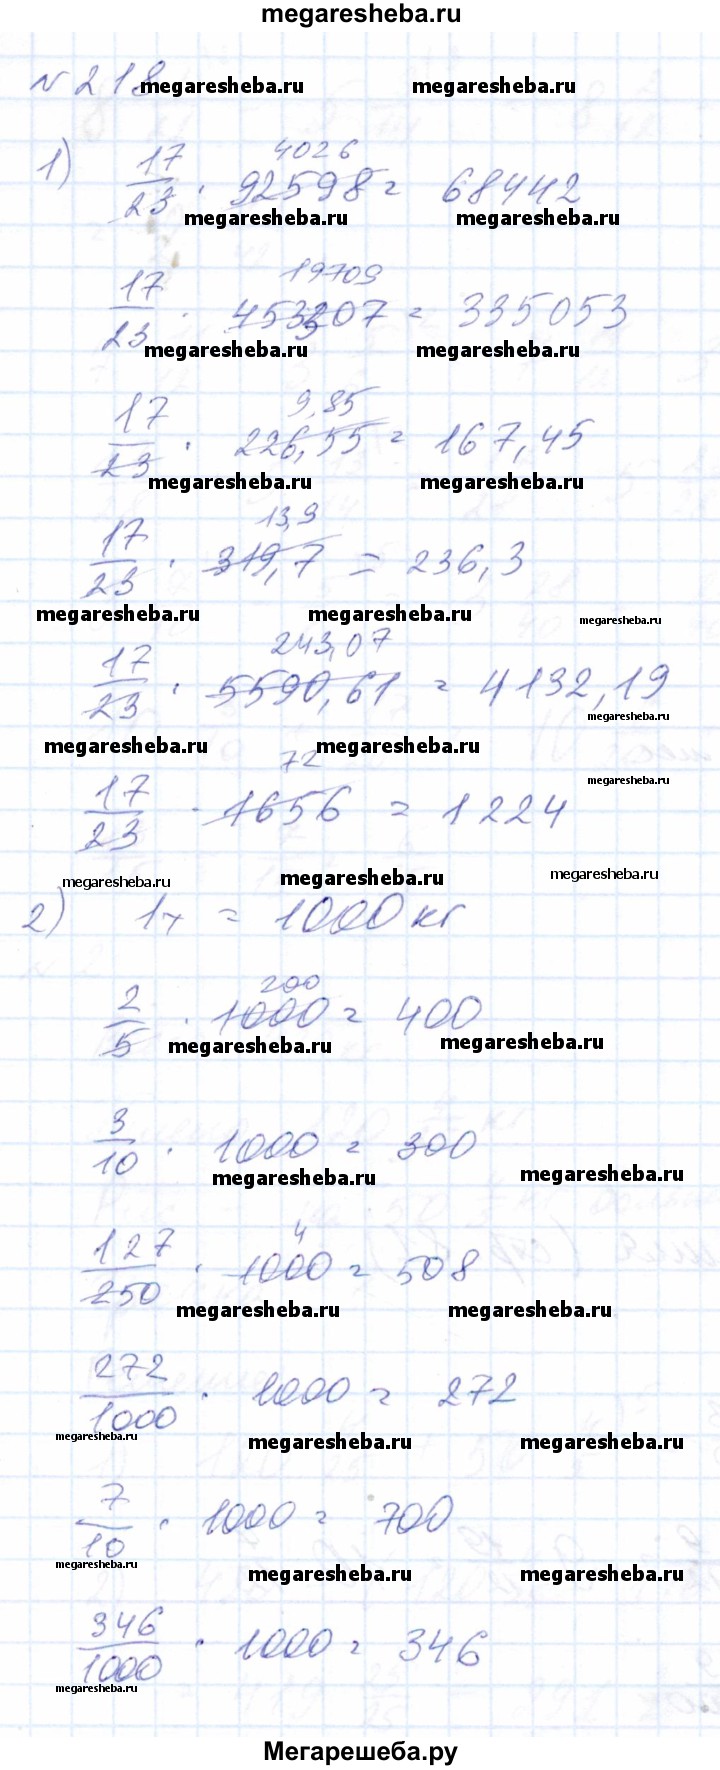 megaresheba.ru
№ 218 megaresheba.ru megaresheba.ru
1) 17/23 · 92598 = 68442
4026
megaresheba.ru megaresheba.ru
17/23 · 453307 = 335053
19709
megaresheba.ru megaresheba.ru
17/23 · 226,55 = 167,45
9,85
megaresheba.ru megaresheba.ru
17/23 · 319,7 = 236,3
13,9
megaresheba.ru megaresheba.ru megaresheba.ru
17/23 · 5590,61 = 4132,19
243,07
megaresheba.ru
megaresheba.ru megaresheba.ru
17/23 · 1656 = 1224
72
megaresheba.ru
megaresheba.ru megaresheba.ru megaresheba.ru
2) 1т = 1000 кг
2/5 · 1000 = 400
200
megaresheba.ru megaresheba.ru
3/10 · 1000 = 300
megaresheba.ru megaresheba.ru
127/250 · 1000 = 508
4
megaresheba.ru megaresheba.ru
272/1000 · 1000 = 272
megaresheba.ru megaresheba.ru megaresheba.ru
7/10 · 1000 = 700
megaresheba.ru megaresheba.ru megaresheba.ru
346/1000 · 1000 = 346
megaresheba.ru megaresheba.ru megaresheba.ru
Мегарешеба.ру